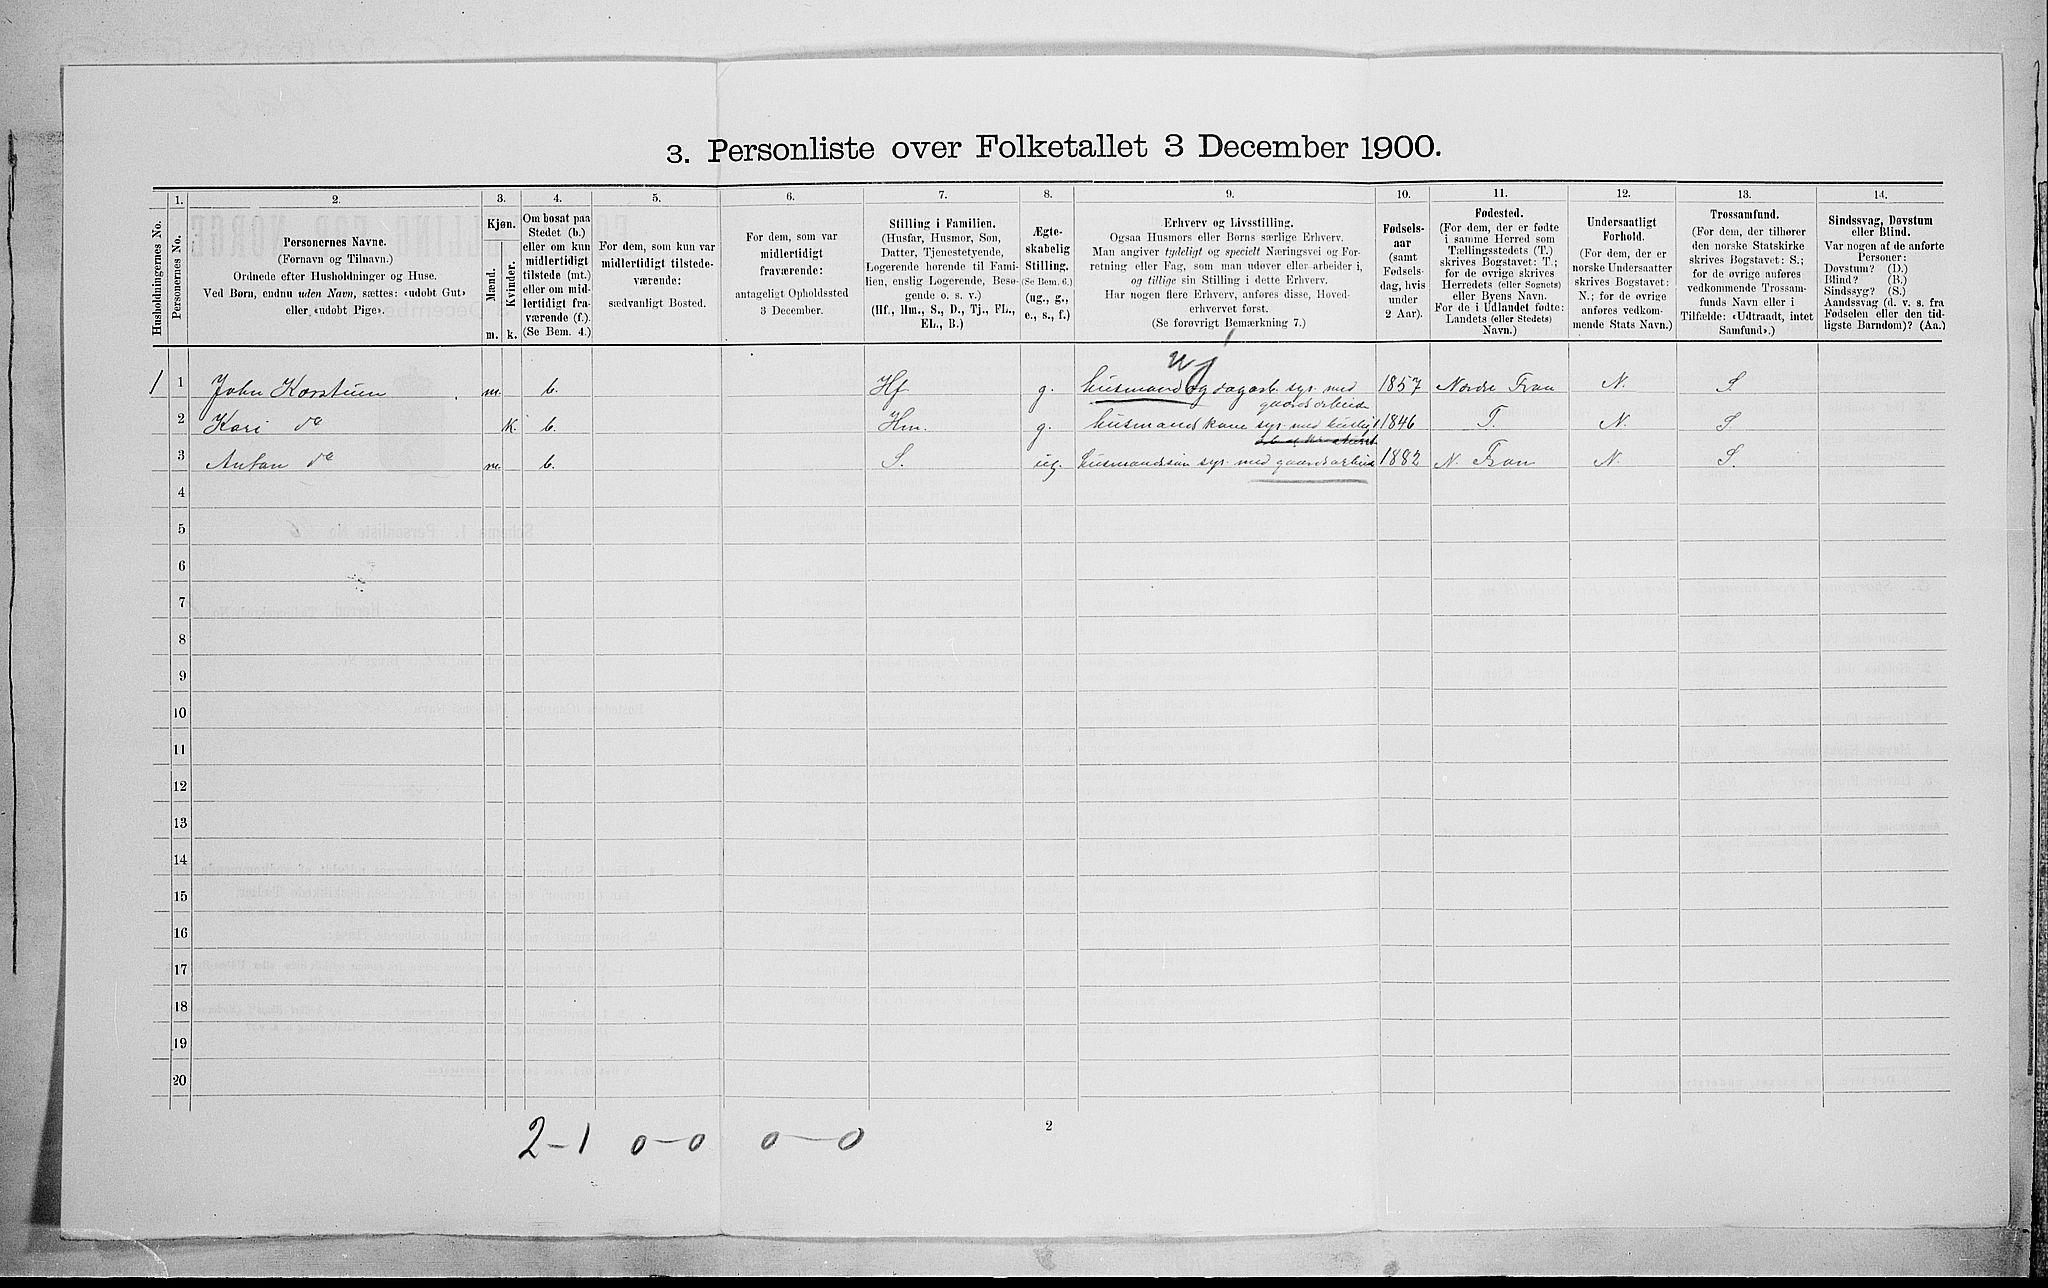 3. Personliste over Folketallet 3 December 1900.
Husholdningernes No.
1.
Personernes No.
2.
Personernes Navne.
(Fornavn og Tilnavn).
Ordnede efter Husholdninger og Huse.
Ved Børn, endnu uden Navn, sættes: «udøbt Gut»
eller «udøbt Pige».
3.
Kjøn.
Mænd.
Kvinder.
m. k.
4.
Om bosat paa
Stedet (b.)
eller om kun
midlertidigt
tilstede (mt.)
eller om mid-
lertidigt fra-
værende (f.).
(Se Bem. 4.)
5.
For dem, som kun var
midlertidigt tilstede-
værende:
sædvanligt Bosted.
6.
For dem, som var
midlertidigt
fraværende:
antageligt Opholdssted
3 December.
7.
Stilling i Familien.
(Husfar, Husmor, Søn,
Datter, Tjenestetyende,
Logerende hørende til Fami-
lien, enslig Logerende, Besø-
gende o. s. v.)
(Hf., Hm., S., D., Tj., FL.,
EL., B.)
8.
Ægte-
skabelig
Stilling.
(Se Bem. 6.)
(ug., g.,
e., s., f.)
9.
Erhverv og Livsstilling.
Ogsaa Husmors eller Børns særlige Erhverv.
Man angiver tydeligt og specielt Næringsvei og For-
retning eller Fag, som man udøver eller arbeider i,
og tillige sin Stilling i dette Erhverv.
Har nogen flere Erhverv, anføres disse, Hoved-
erhvervet først.
(Se forøvrigt Bemærkning 7.)
10.
Fødsels-
aar
(samt
Fødsels-
dag, hvis
under
2 Aar).
11.
Fødested.
(For dem, der er fødte
i samme Herred som
Tællingsstedets (T.)
skrives Bogstavet: T.;
for de øvrige skrives
Herredets (eller Sognets)
eller Byens Navn.
For de i Udlandet fødte:
Landets (eller Stedets)
Navn.)
12.
Undersaatligt
Forhold.
(For dem, der er
norske Undersaatter
skrives Bogstavet:
N.; for de øvrige
anføres vedkom-
mende Stats Navn.)
13.
Trossamfund.
(For dem, der tilhører
den norske Statskirke
skrives Bogstavet: S.;
for de øvrige anføres
vedkommende Trossam-
funds Navn eller i
Tilfælde: «Udtraadt, intet
Samfund».)
14.
Sindssvag, Døvstum
eller Blind.
Var nogen af de anførte
Personer:
Døvstum? (D.)
Blind? (B.)
Sindssyg? (S.)
Aandssvag (d. v. s. fra
Fødselen eller den tid-
ligste Barndom)? (Aa.)
1 1 John Korstuen m. b. Hf g. husmand og dagarb. sys. med gaardsarbeide 1857 Nordre Fron N. S.
2 Kari do k. b. Hm. g. husmands kone sys. med husligt 1846 T. N. S
3 Anton do m. b. S. ug. husmandssøn sys. med gaardsarbeide 1882 N. Fron N. S.
4
5
6
7
8
9
10
11
12
13
14
15
16
17
18
19
20
2-1 0-0 0-0
2